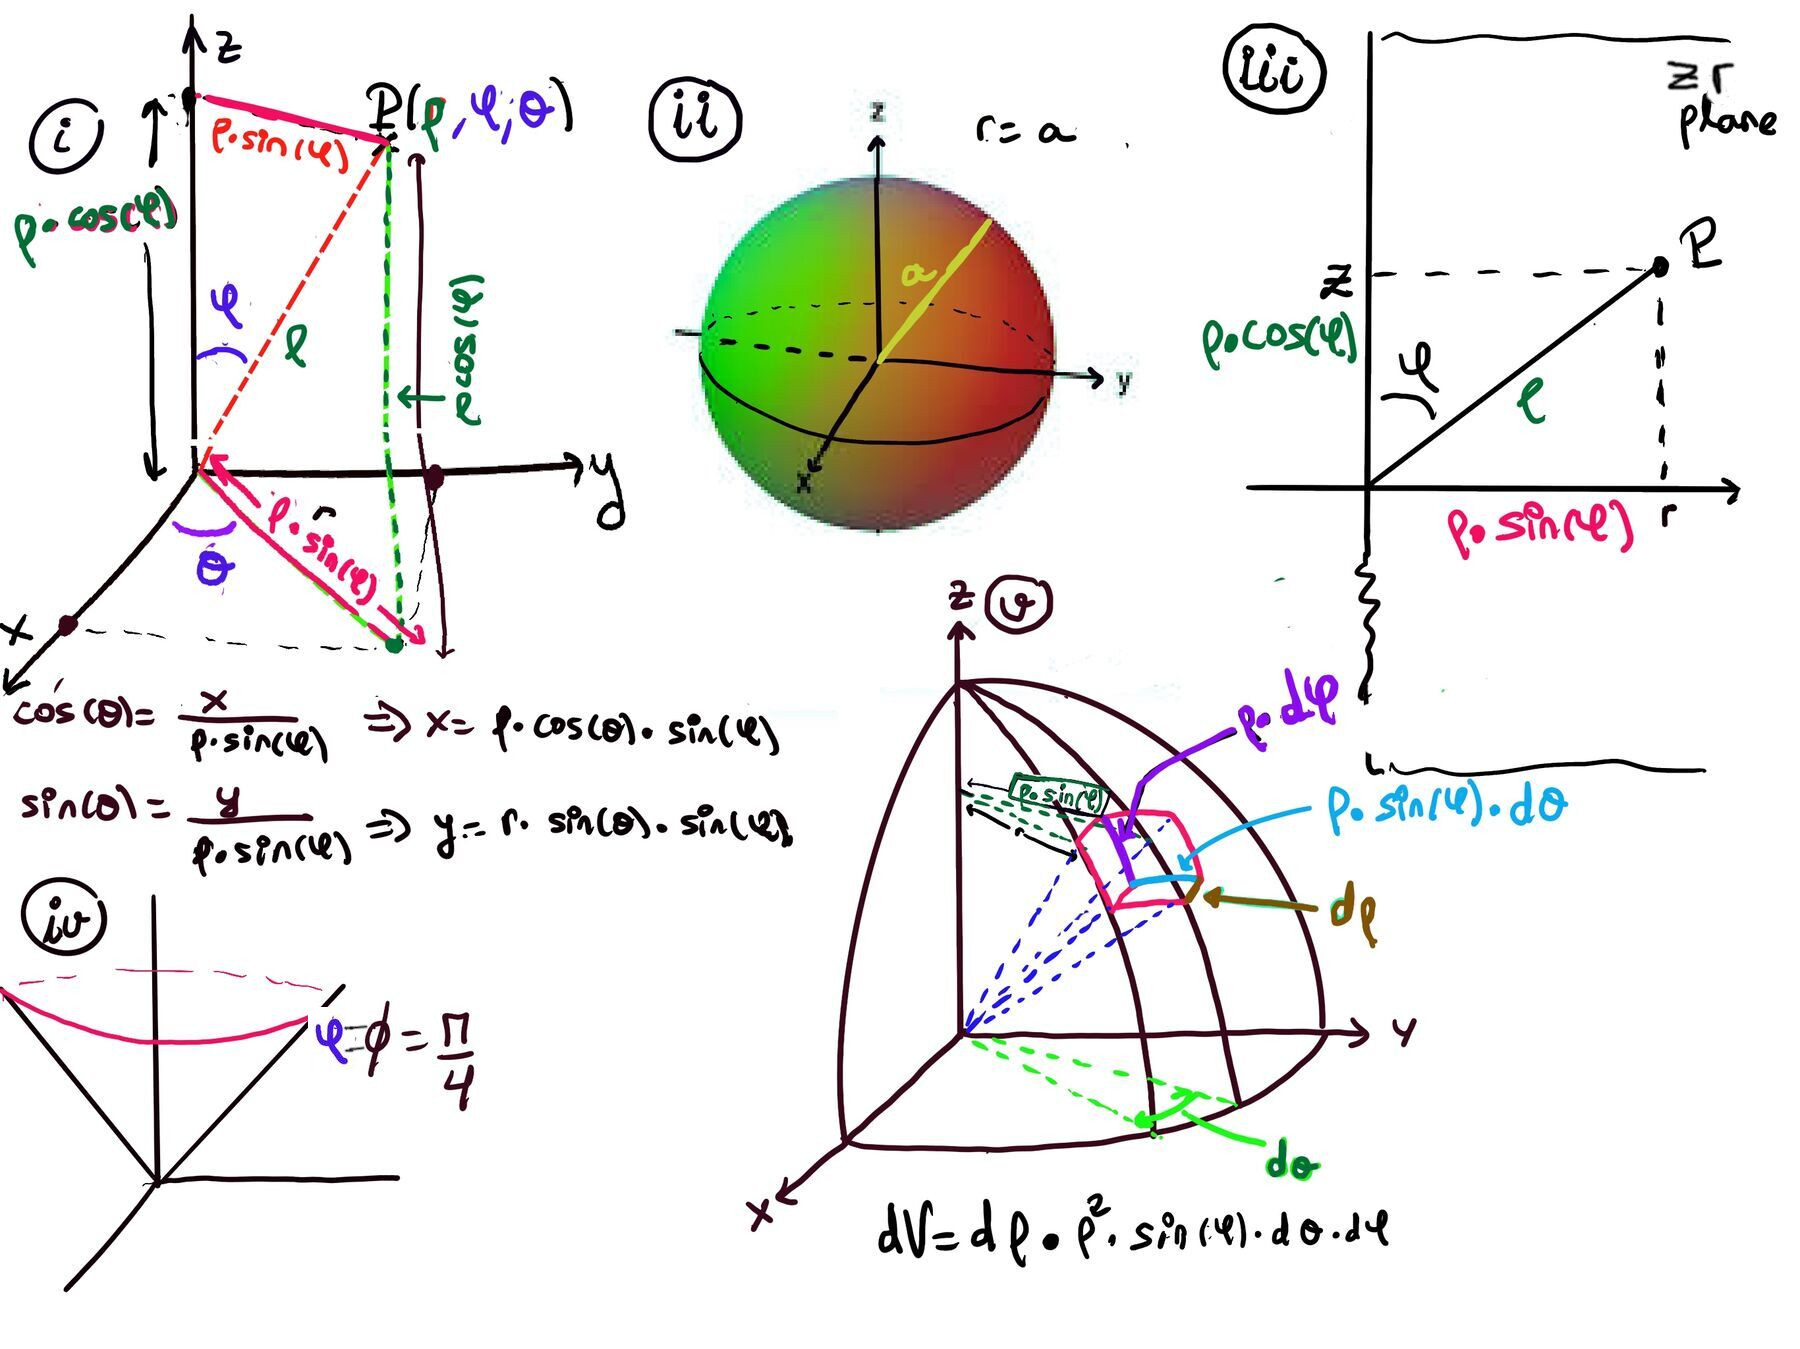 i
z
P(ρ, φ, θ)
ρ·sin(φ)
ρ·cos(φ)
φ
ρ
ρcos(φ)
y
r
ρ·sin(φ)
θ
x
cos(θ)= x/ρ·sin(φ) => x= ρ·cos(θ)·sin(φ)
sin(θ)= y/ρ·sin(φ) => y= r·sin(θ)·sin(φ)
ii
r= a
z
a
y
x
iii
z r
plane
P
z
ρ·cos(φ)
φ
ρ
ρ·sin(φ)
r
iv
φ=ϕ= π/4
v
z
ρ·dφ
ρ·sin(φ)
r
ρ·sin(φ)·dθ
dρ
y
dθ
x
dV= dρ·ρ²·sin(φ)·dθ·dφ